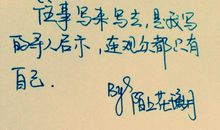 往事写来写去,是我写
的寻人启示,连观众都只有
自己.
By 陌上花满月